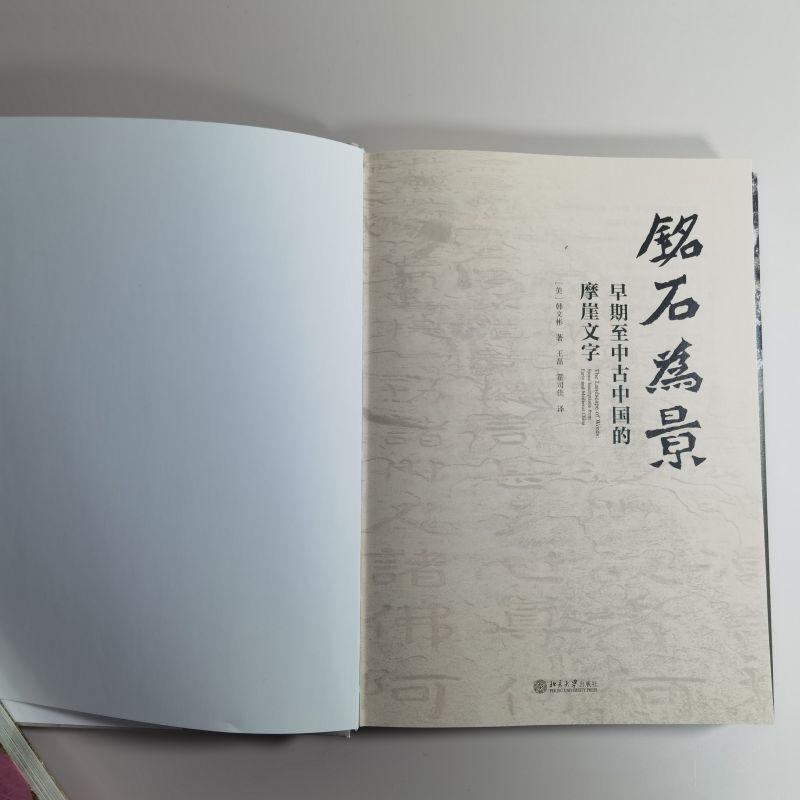 銘石為景
早期至中古中国的
摩崖文字
The Landscape of Words:
Stone Inscriptions from
Early and Medieval China
[美]韩文彬 著 王磊 霍司佳 译
諸佛阿
北京大学出版社
PEKING UNIVERSITY PRESS